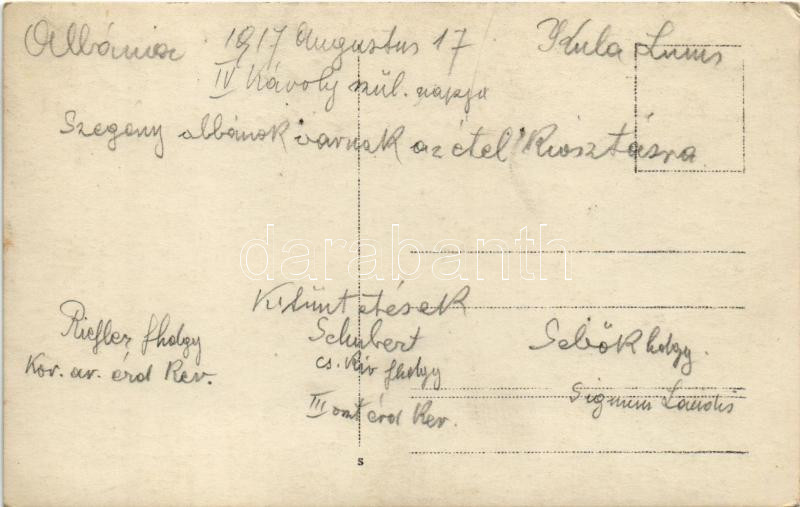 Albánia 1917 Augustus 17 Kula Lums
IV Károly szül. napja
Szegény albánok várnak az étel kiosztásra
darabanth
Kitüntetések
Riefler fhdgy
Kor. av. érd Ker.
Schubert
cs. Kir fhdgy
III oszt érd Ker.
Sebők hdgy.
Signum Laudis
S